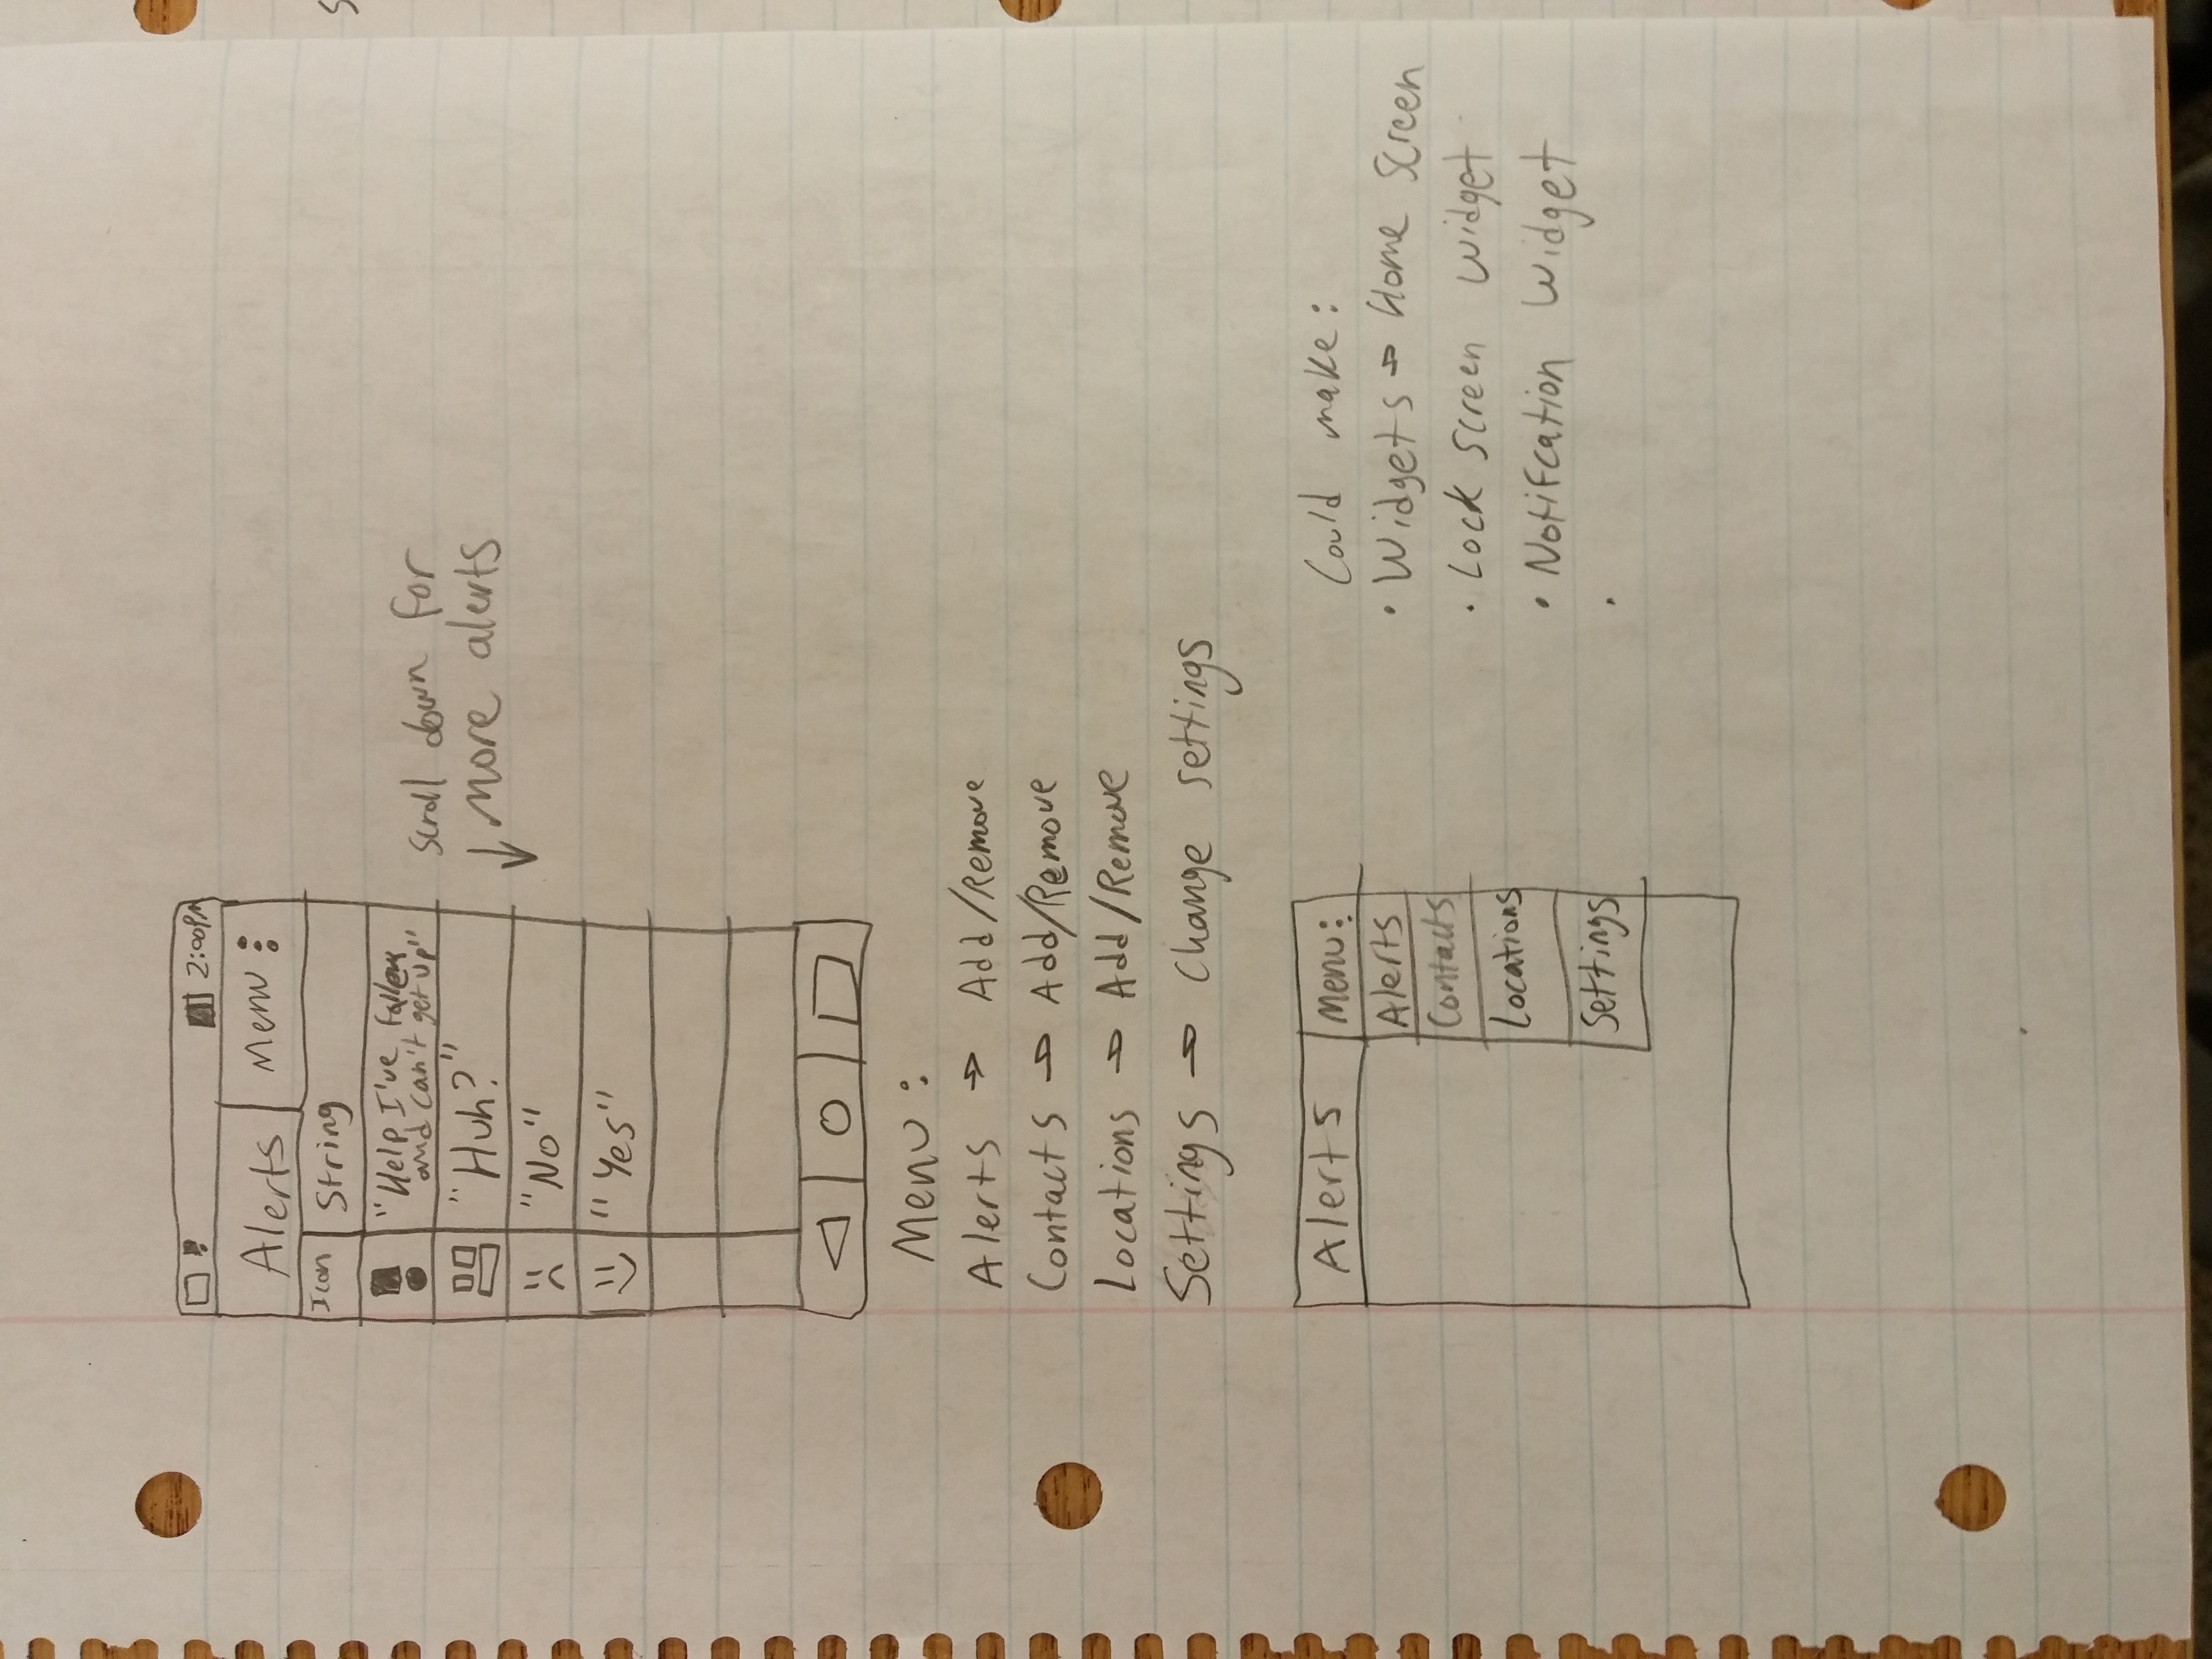 2:00PM
Alerts Menu
Icon String
"Help I've fallen
and can't get up"
"Huh?"
"No"
"Yes"
Scroll down for
↓ More alerts
Menu :
Alerts → Add/Remove
Contacts → Add/Remove
Locations → Add/Remove
Settings → Change settings
Alerts Menu:
Alerts
Contacts
Locations
Settings
Could make:
• Widgets → Home Screen
• Lock screen widget
• Notifcation Widget
•